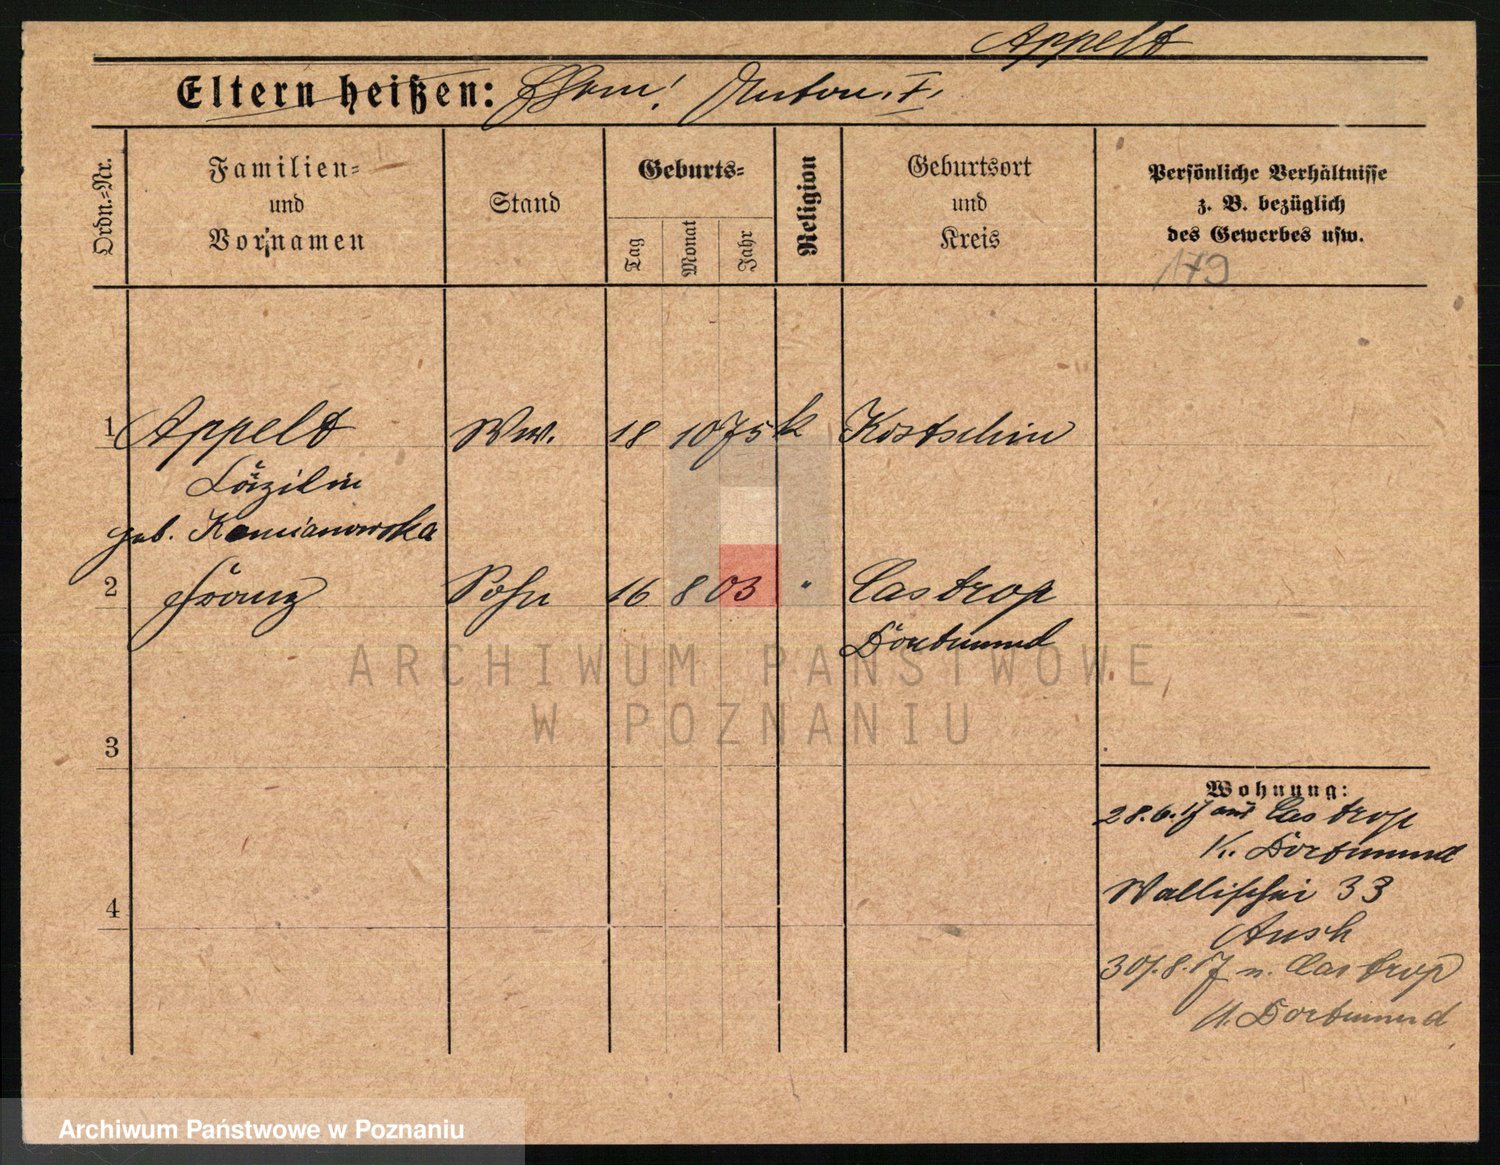 Appelt
Eltern heißen: Ehem! Anton, †,
Ordn.-Nr.
Familien-
und
Vornamen
Stand
Geburts-
Tag
Monat
Jahr
Religion
Geburtsort
und
Kreis
Persönliche Verhältnisse
z. B. bezüglich
des Gewerbes usw.
179
1 Appelt Ww. 18 10 75 k Kostschin
Cäzilie
geb. Kamianowska
2 Franz Sohn 16 8 03 " Castrop
Dortmund
ARCHIWUM PAŃSTWOWE
W POZNANIU
3
Wohnung:
28.6.17 aus Castrop
K. Dortmund
4
Wallischei 33
30/.8.17 n. Castrop
K. Dortmund
Archiwum Państwowe w Poznaniu